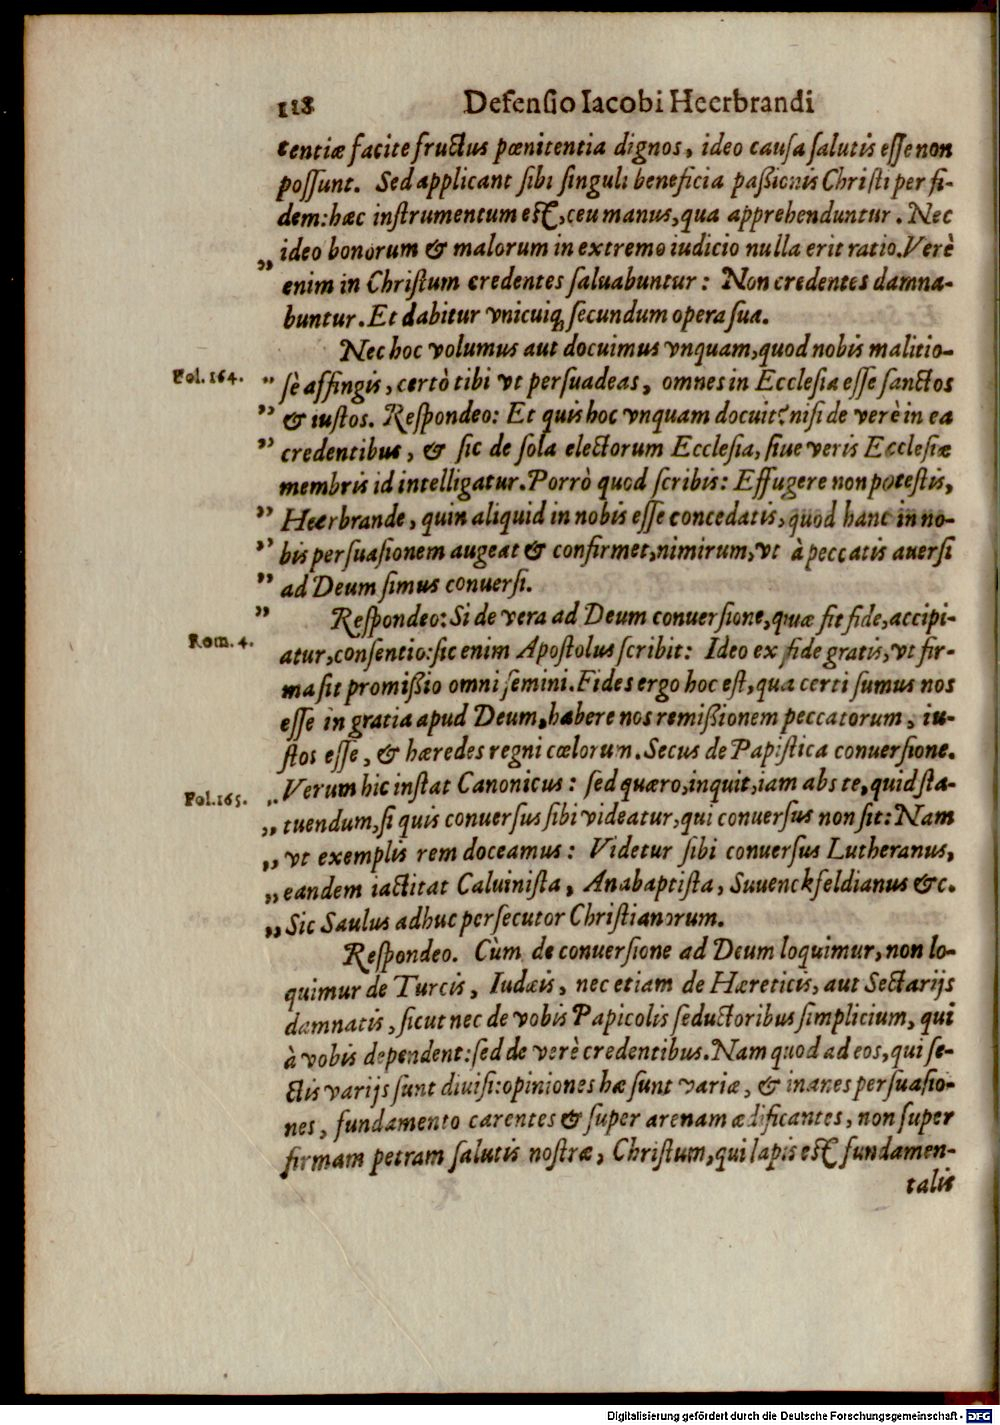 118 Defensio Iacobi Heerbrandi
tentiæ facite fructus pœnitentia dignos, ideo causa salutis esse non
possunt. Sed applicant sibi singuli beneficia paßionis Christi per fi-
dem: hæc instrumentum est, ceu manus, qua apprehenduntur. Nec
ideo bonorum & malorum in extremo iudicio nulla erit ratio. Verè
„ enim in Christum credentes saluabuntur: Non credentes damna-
buntur. Et dabitur vnicuiq; secundum opera sua.
Nec hoc volumus aut docuimus vnquam, quod nobis malitio-
Fol. 164. ” sè affingis, certò tibi vt persuadeas, omnes in Ecclesia esse sanctos
” & iustos. Respondeo: Et quis hoc vnquam docuit? nisi de verè in ea
” credentibus, & sic de sola electorum Ecclesia, siue veris Ecclesiæ
membris id intelligatur. Porrò quod scribis: Effugere non potestis,
” Heerbrande, quin aliquid in nobis esse concedatis, quod hanc in no-
” bis persuasionem augeat & confirmet, nimirum, vt à peccatis auersi
” ad Deum simus conuersi.
” Respondeo: Si de vera ad Deum conuersione, quæ fit fide, accipi-
Rom. 4. atur, consentio: sic enim Apostolus scribit: Ideo ex fide gratis, vt fir-
ma sit promißio omni semini. Fides ergo hoc est, qua certi sumus nos
esse in gratia apud Deum, habere nos remißionem peccatorum, iu-
stos esse, & hæredes regni cœlorum. Secus de Papistica conuersione.
Fol. 165. „ Verum hic instat Canonicus: sed quæro, inquit, iam abs te, quid sta-
„ tuendum, si quis conuersus sibi videatur, qui conuersus non sit: Nam
„ vt exemplis rem doceamus: Videtur sibi conuersus Lutheranus,
„ eandem iactitat Caluinista, Anabaptista, Suuenckfeldianus &c.
„ Sic Saulus adhuc persecutor Christianorum.
Respondeo. Cùm de conuersione ad Deum loquimur, non lo-
quimur de Turcis, Iudæis, nec etiam de Hæreticis, aut Sectarijs
damnatis, sicut nec de vobis Papicolis seductoribus simplicium, qui
à vobis dependent: sed de verè credentibus. Nam quod ad eos, qui se-
ctis varijs sunt diuisi: opiniones hæ sunt variæ, & inanes persuasio-
nes, fundamento carentes & super arenam ædificantes, non super
firmam petram salutis nostræ, Christum, qui lapis est fundamen-
talis
Digitalisierung gefördert durch die Deutsche Forschungsgemeinschaft - DFG